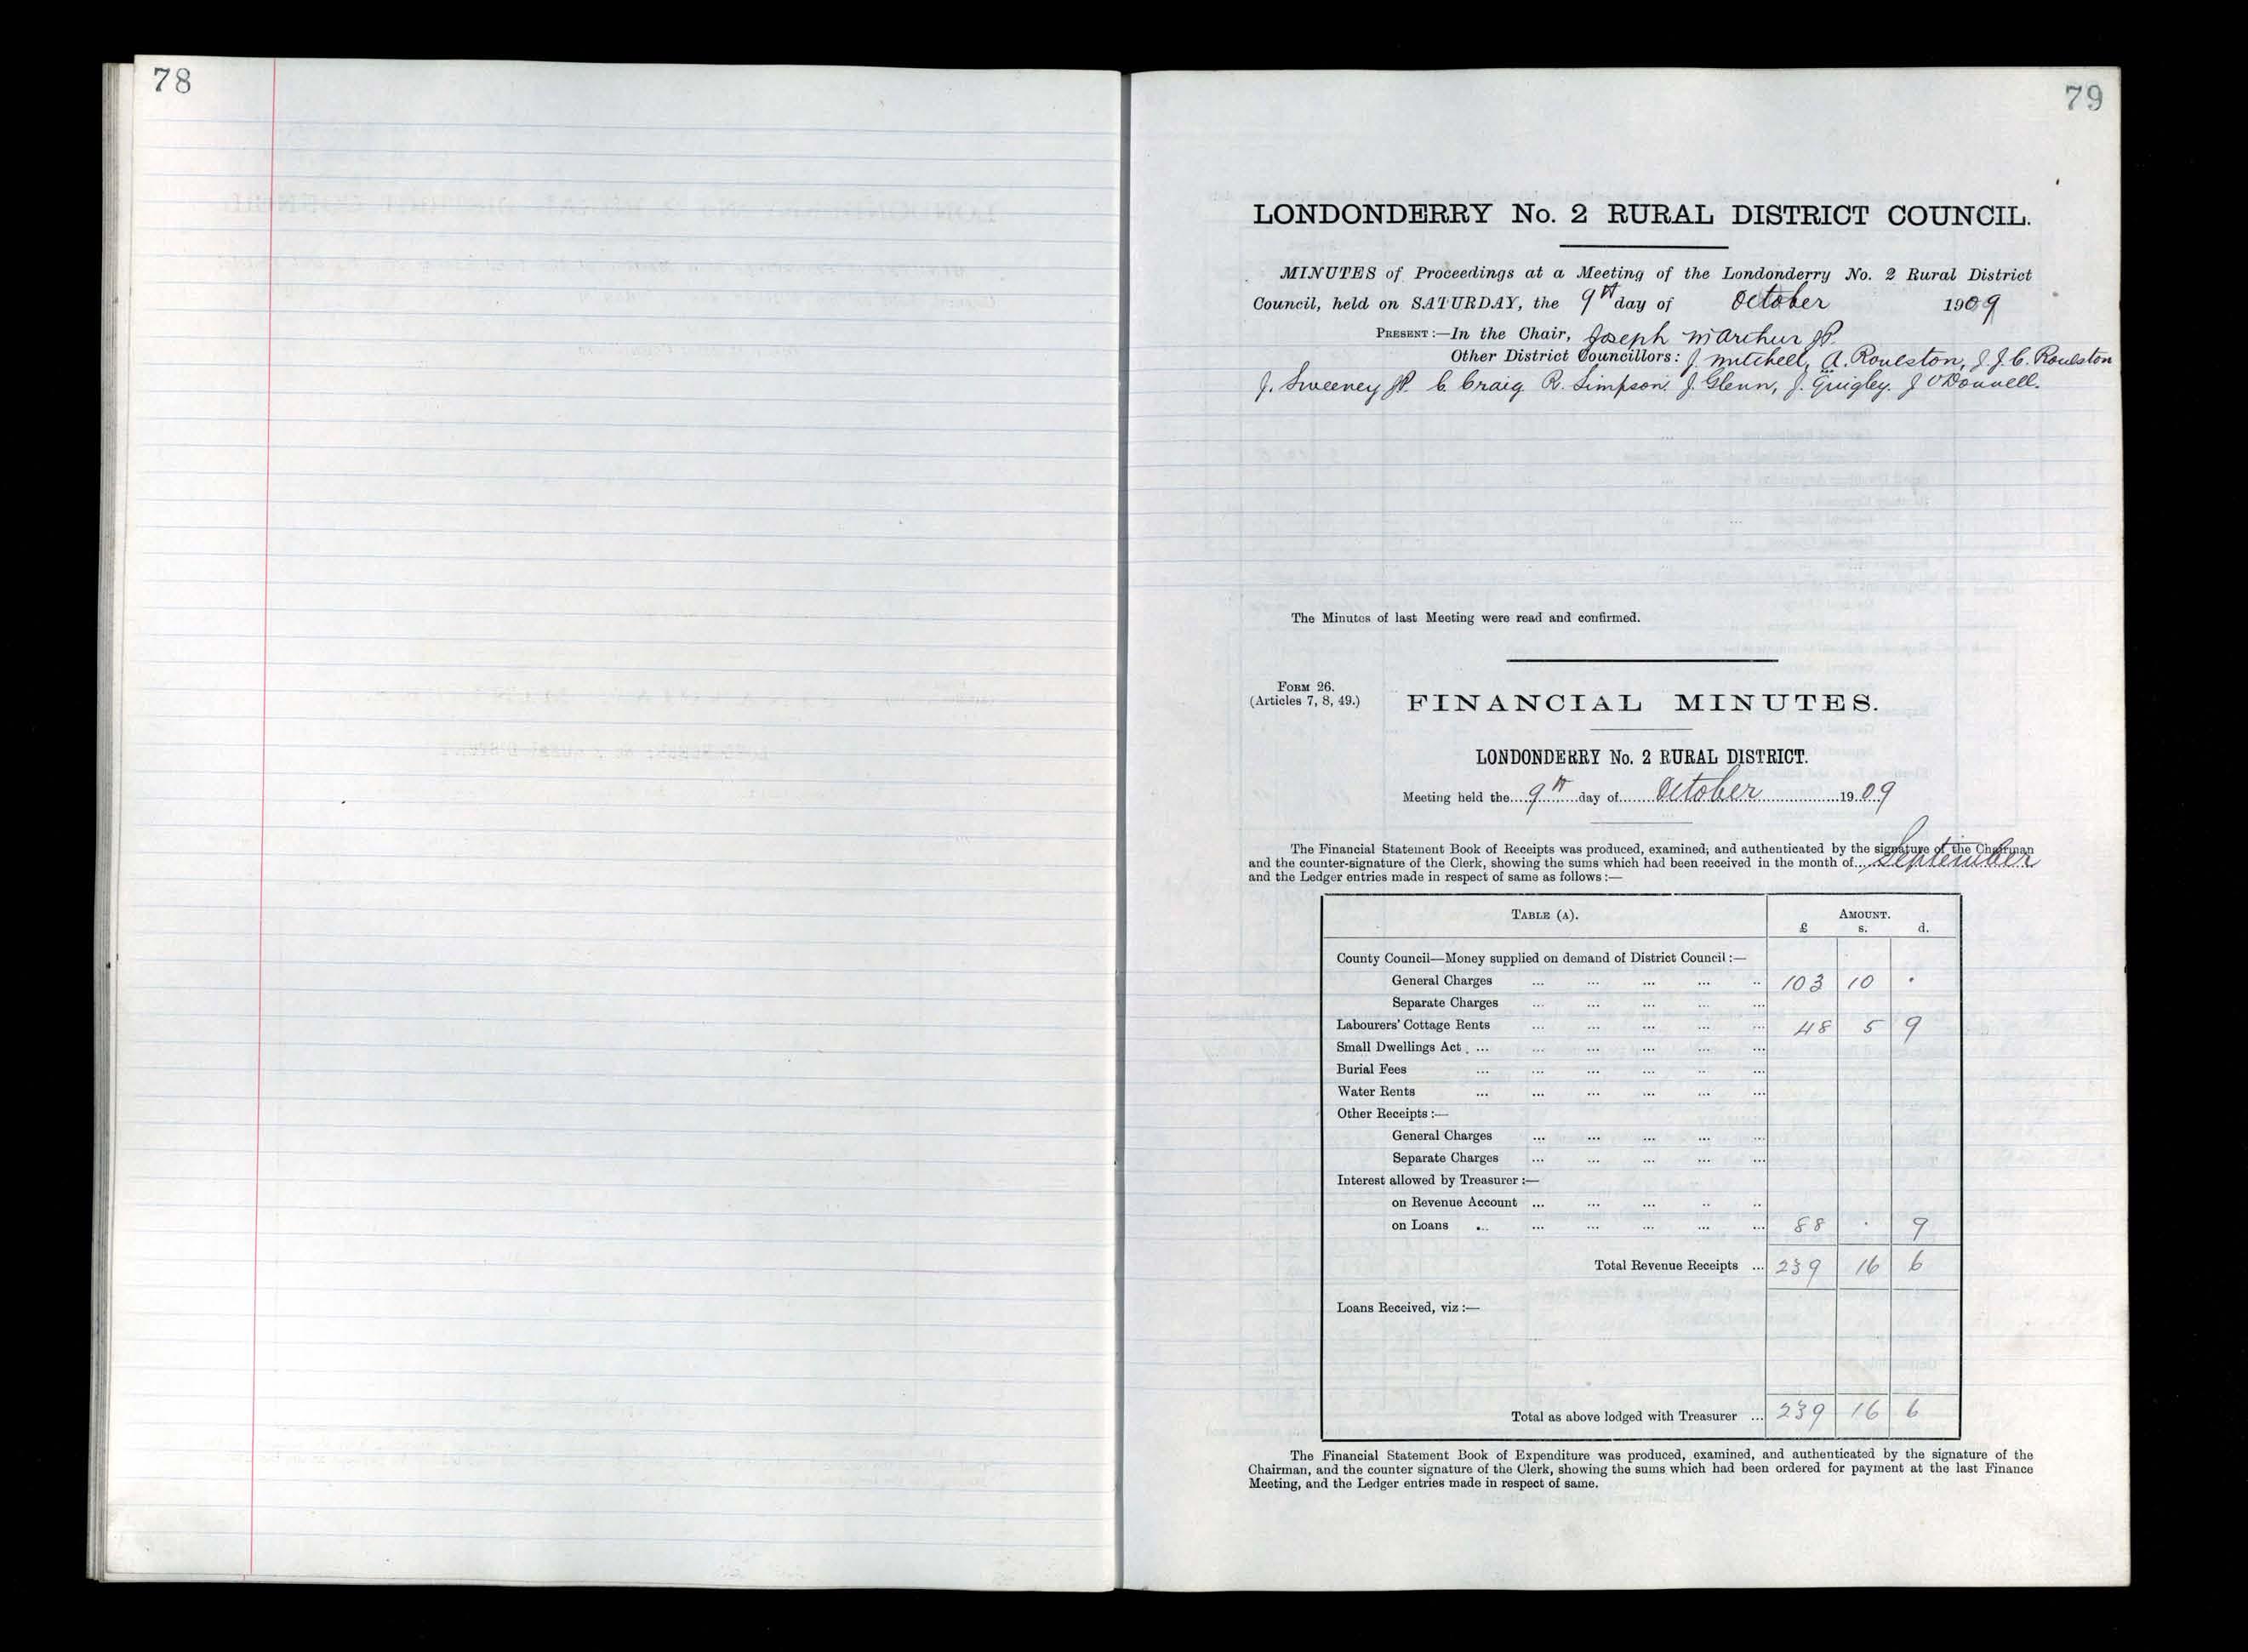 78
79
LONDONDERRY No. 2 RURAL DISTRICT COUNCIL.
MINUTES of Proceedings at a Meeting of the Londonderry No. 2 Rural District
Council, held on SATURDAY, the 9th day of October 1909
PRESENT:—In the Chair, Joseph McArthur JP.
Other District Councillors: J. Mitchell, A. Roulston, J J. C. Roulston
J. Sweeney JP. C Craig. R. Simpson. J. Glenn, J. Quigley. J O'Donnell.
The Minutes of last Meeting were read and confirmed.
FORM 26.
(Articles 7, 8, 49.)
FINANCIAL MINUTES.
LONDONDERRY No. 2 RURAL DISTRICT.
Meeting held the....9th....day of.......October................1909
The Financial Statement Book of Receipts was produced, examined, and authenticated by the signature of the Chairman
and the counter-signature of the Clerk, showing the sums which had been received in the month of....September
and the Ledger entries made in respect of same as follows:—
TABLE (A). AMOUNT.
£ s. d.
County Council—Money supplied on demand of District Council:—
General Charges ... ... ... ... .. 103 10 .
Separate Charges ... ... ... ... ...
Labourers' Cottage Rents ... ... ... ... ... 48 5 9
Small Dwellings Act ... ... ... ... ... ...
Burial Fees ... ... ... ... .. ...
Water Rents ... ... ... ... ... ...
Other Receipts:—
General Charges ... ... ... ... ...
Separate Charges ... ... ... ... ...
Interest allowed by Treasurer:—
on Revenue Account ... ... ... .. ..
on Loans ... ... ... ... ... ... 88 . 9
Total Revenue Receipts ... 239 16 6
Loans Received, viz:—
Total as above lodged with Treasurer ... 239 16 6
The Financial Statement Book of Expenditure was produced, examined, and authenticated by the signature of the
Chairman, and the counter signature of the Clerk, showing the sums which had been ordered for payment at the last Finance
Meeting, and the Ledger entries made in respect of same.